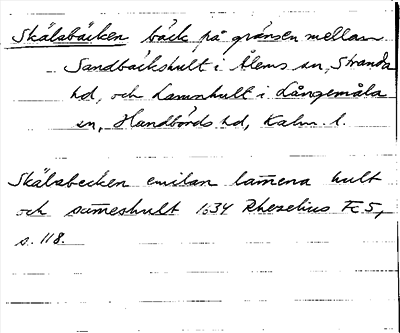 Skälsbäcken bäck på gränsen mellan
Sandbäckshult i Ålems sn, Stranda
hd, och Lammhult i Långemåla
sn, Handbörds hd, Kalm. l.
Skälsbecken emilan lam̅ena hult
och sam̅eshult 1634 Rhezelius Fc 5,
s. 118.